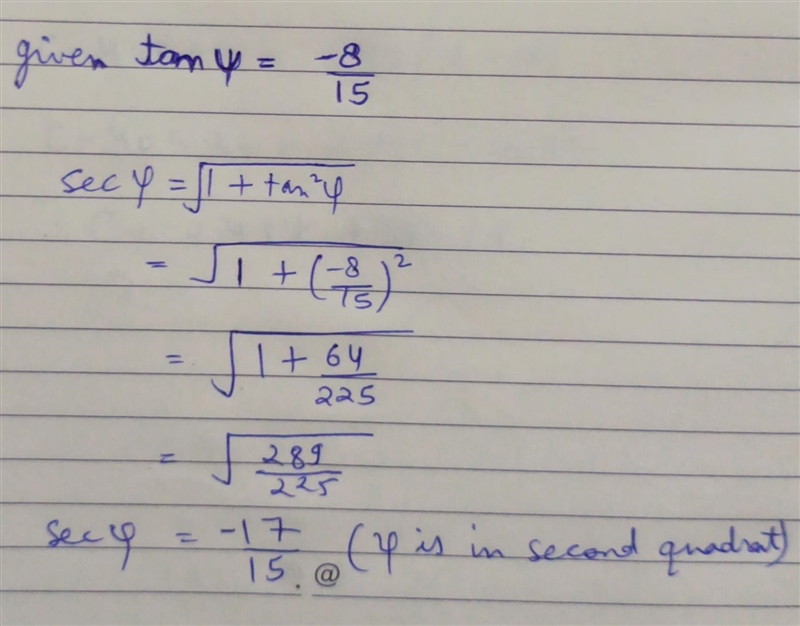 given tan ψ = -8/15
sec φ = √(1 + tan²φ)
= √(1 + (-8/15)²)
= √(1 + 64/225)
= √(289/225)
sec φ = -17/15. @ (φ is in second quadrat)